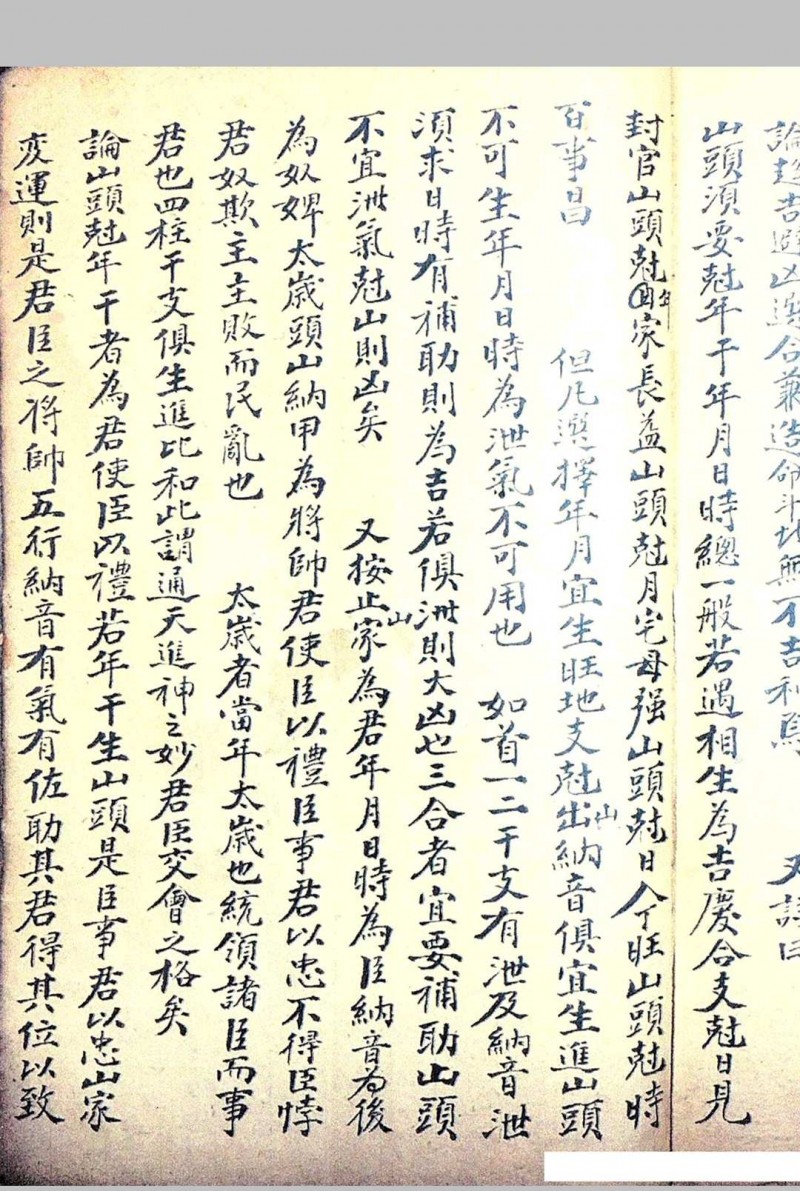 論趋吉避凶選合兼造命斗北無不吉利焉 又詩曰
山頭須要尅年干年月日時總一般若遇相生為吉慶合支尅日見
封官山頭尅年家長益山頭尅月宅母强山頭尅日人丁旺山頭尅時
百事昌 但凡選擇年月宜生旺地支尅出山納音俱宜生進山頭
不可生年月日時為泄氣不可用也 如首一二干支有泄及納音泄
須求日時有補助則為吉若俱泄則大凶也三合者宜要補助山頭
不宜泄氣尅山則凶矣 又按山家為君年月日時為臣納音為後
為奴婢太歲頭山納甲為將帥君使臣以禮臣事君以忠不得臣悖
君奴欺主主敗而民亂也 太歲者當年太歲也統領諸臣而事
君也四柱干支俱生進比和此謂通天進神之妙君臣交會之格矣
論山頭尅年干者為君使臣以禮若年干生山頭是臣事君以忠山家
変運則是君臣之将帥五行納音有氣有佐助其君得其位以致